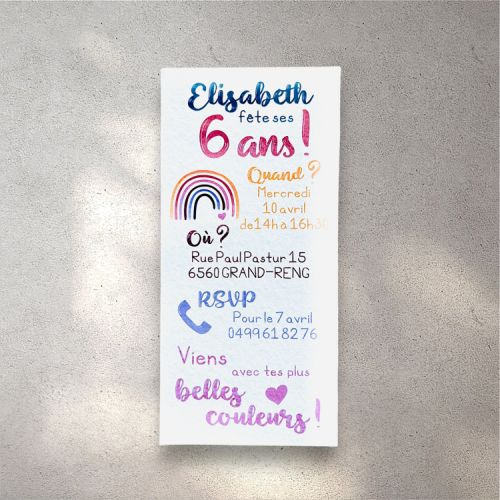 Elisabeth
fête ses
6 ans !
Quand ?
Mercredi
10 avril
de 14h à 16h30
Où ?
Rue Paul Pastur 15
6560 GRAND-RENG
RSVP
Pour le 7 avril
0499618276
Viens
avec tes plus
belles
couleurs !